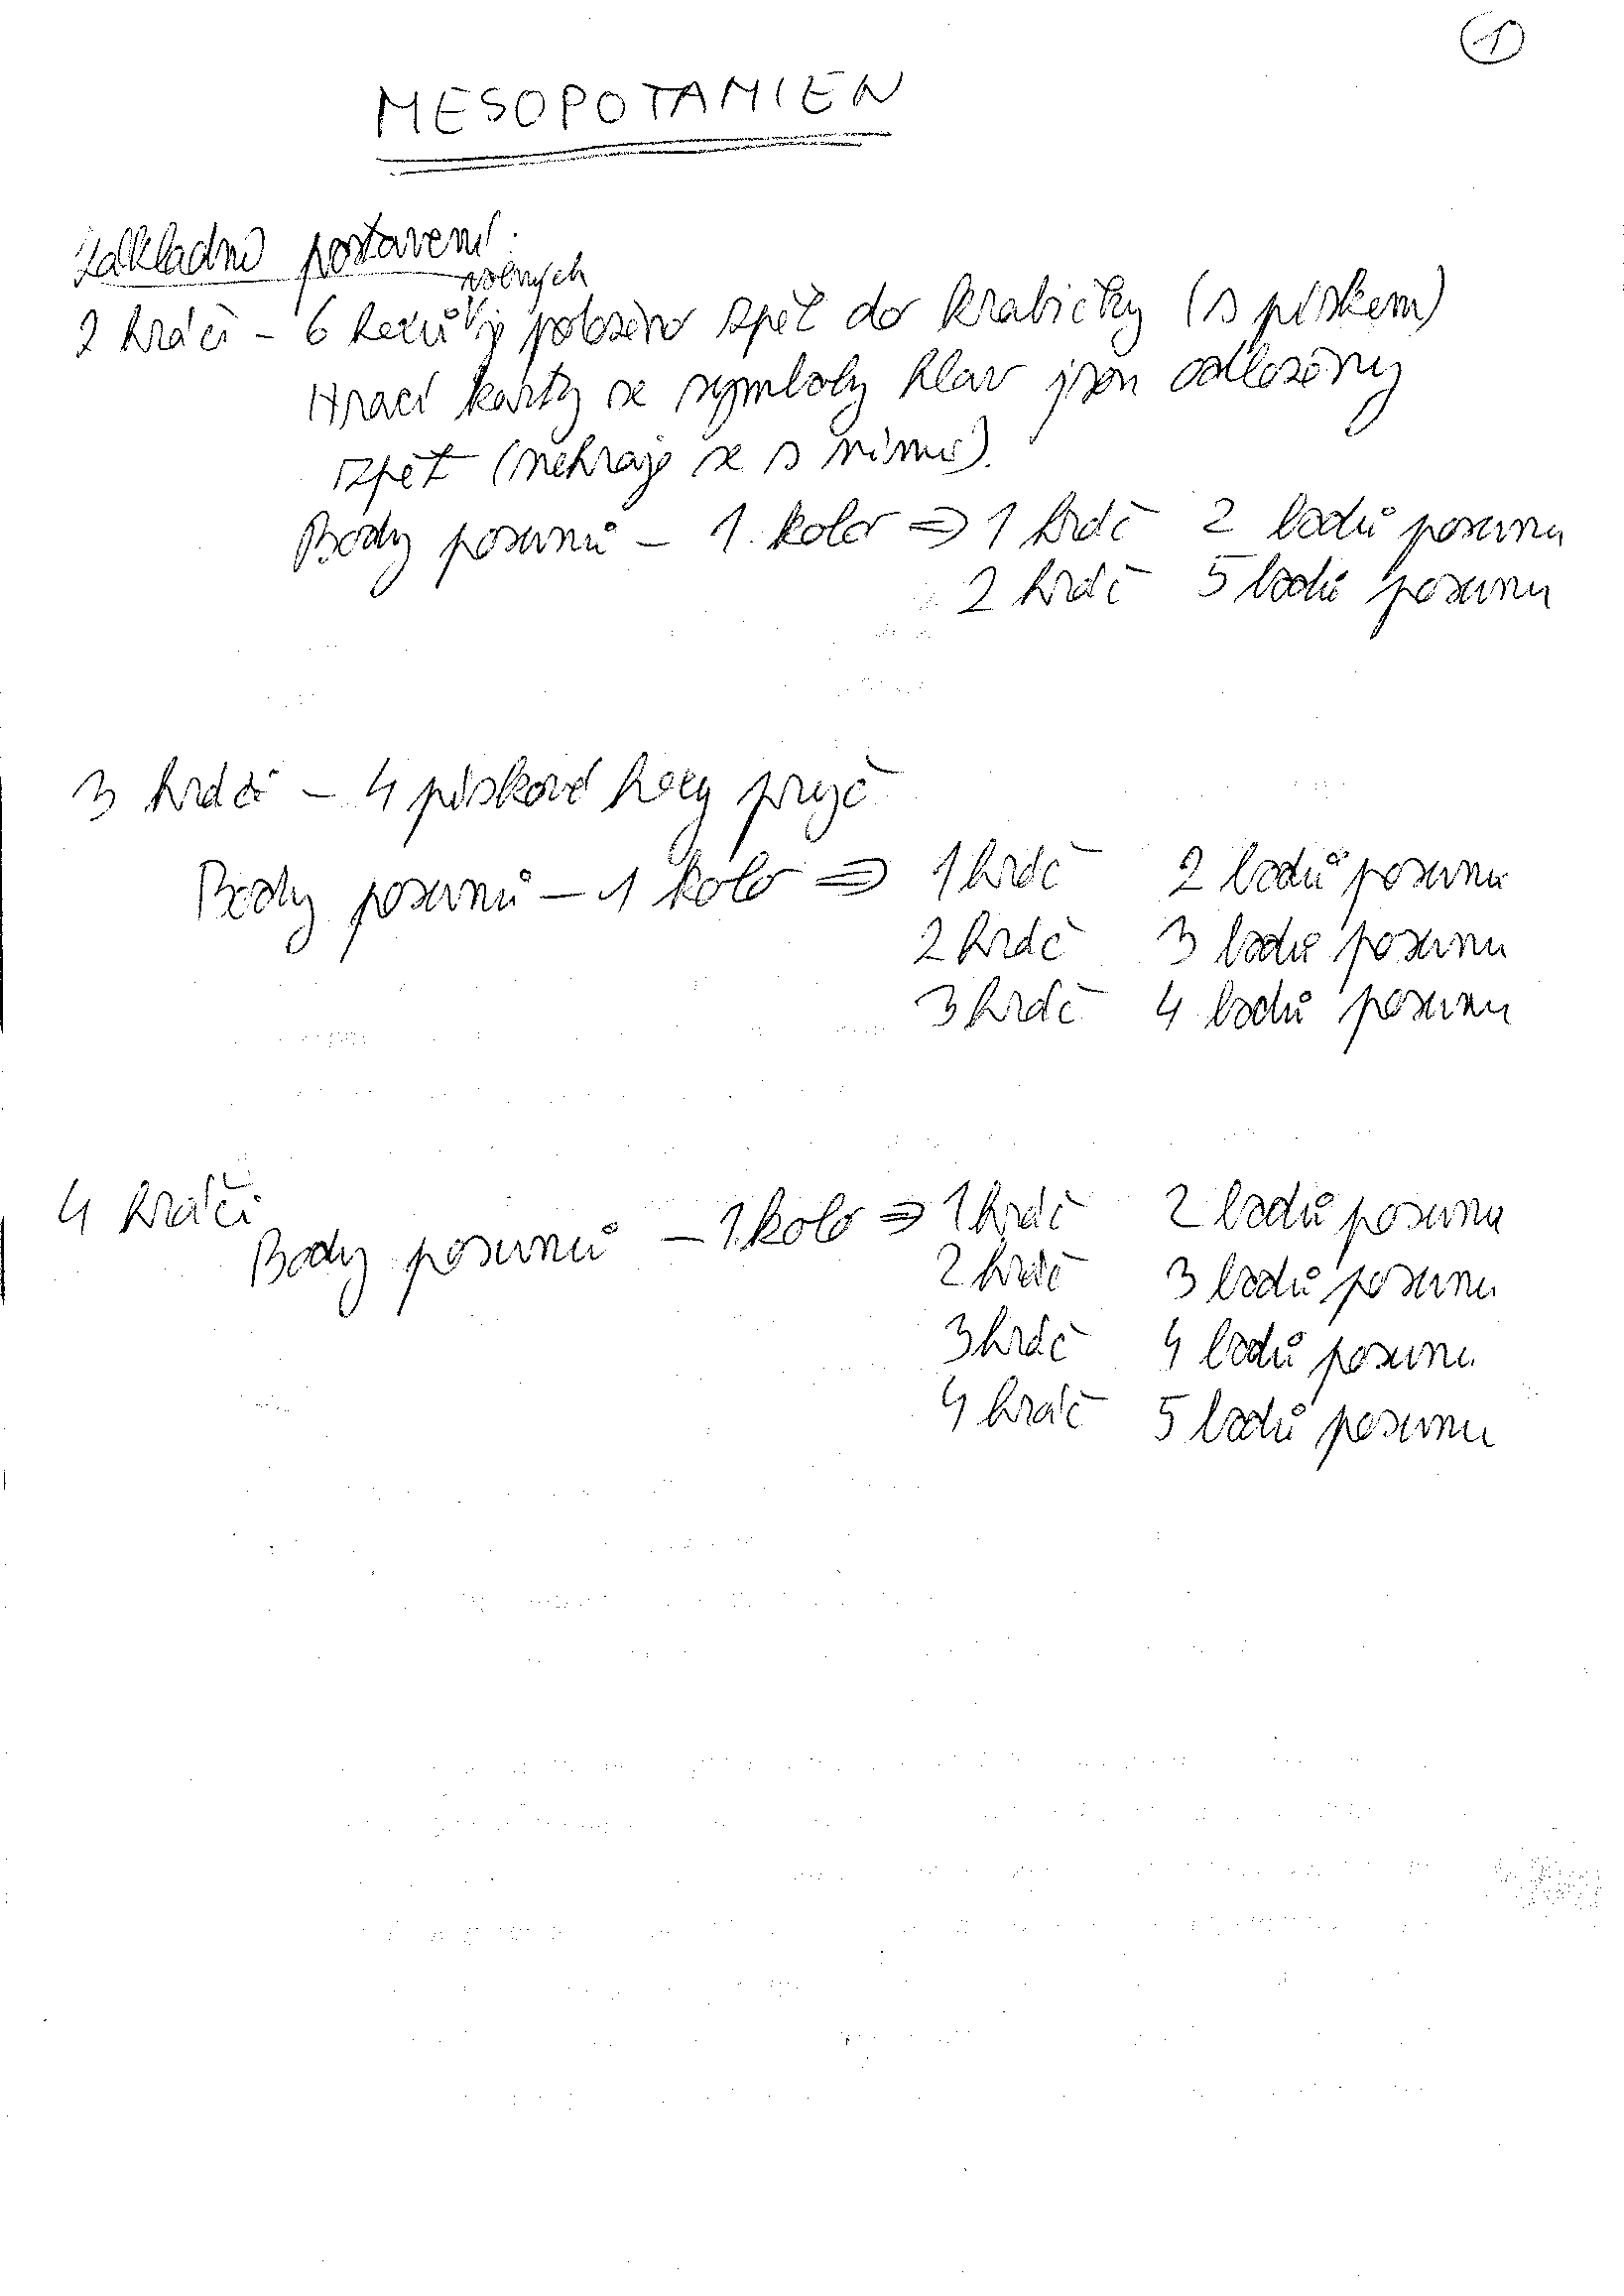 1
MESOPOTAMIEN
Základní postavení:
2 hráči – 6 hexů je položeno zpět do krabičky (s pískem)
Hrací karty se symboly hlav jsou odloženy
zpět (nehraje se s nimi).
Body posunů – 1. kolo ⇒ 1 hráč 2 bodů posunu
2 hráč 5 bodů posunu
3 hráči – 4 pískové hexy pryč
Body posunů – 1 kolo ⇒ 1 hráč 2 bodů posunu
2 hráč 3 bodů posunu
3 hráč 4 bodů posunu
4 hráči
Body posunů – 1. kolo ⇒ 1 hráč 2 bodů posunu
2 hráč 3 bodů posunu
3 hráč 4 bodů posunu
4 hráč 5 bodů posunu